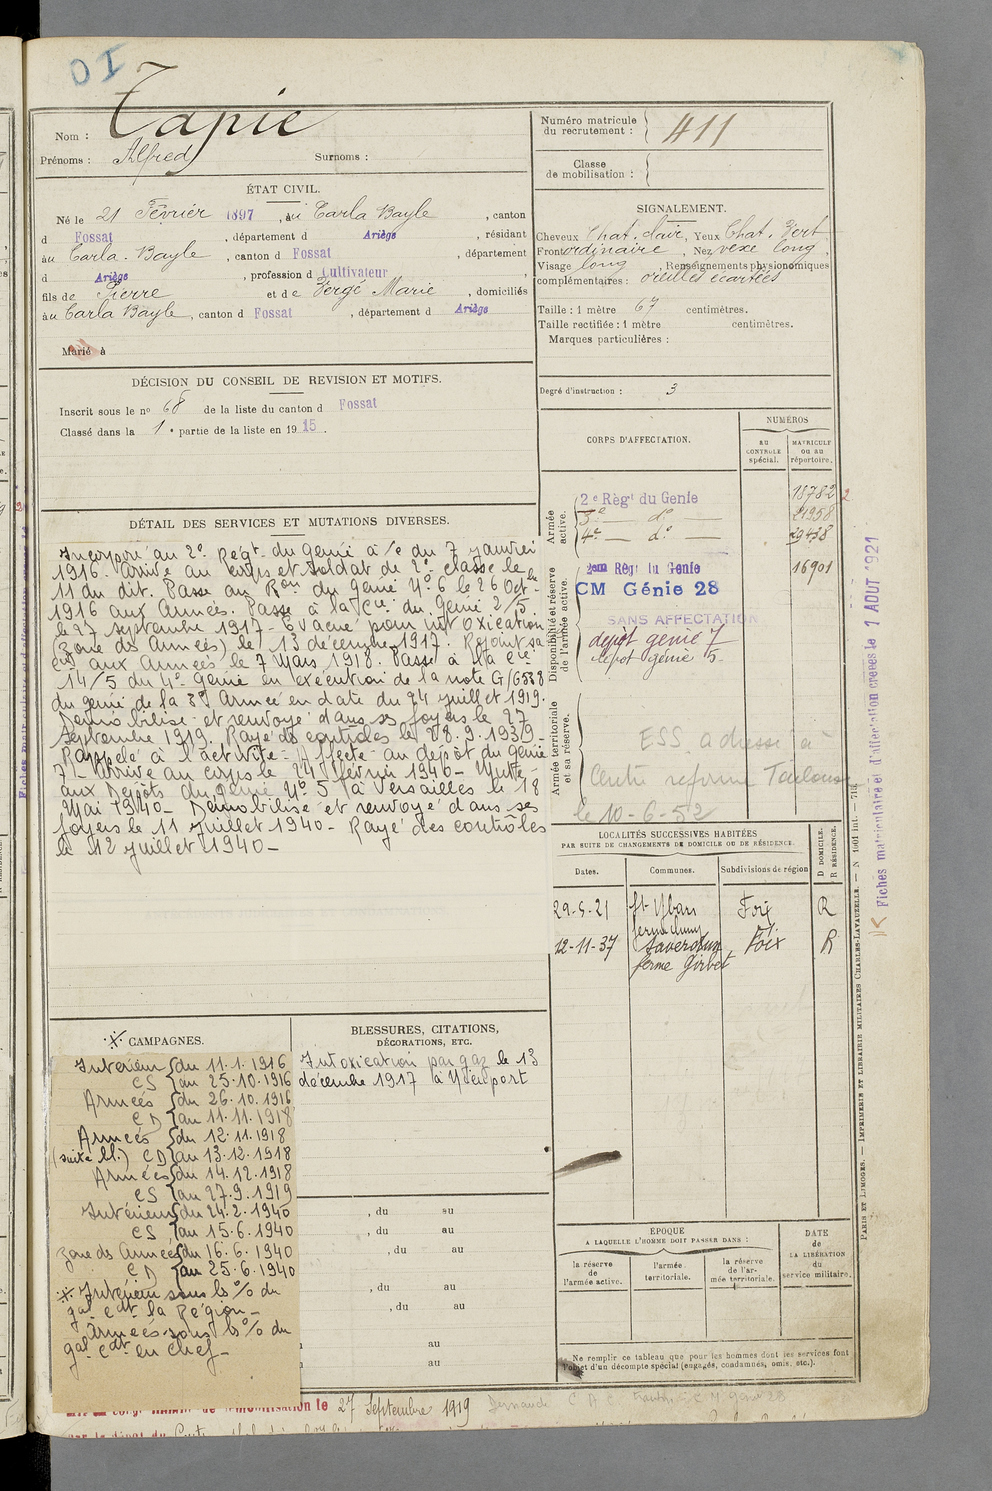 OI
Nom : Tapie
Prénoms : Alfred Surnoms :
ÉTAT CIVIL.
Né le 21 Février 1897, à Carla Bayle, canton
d Fossat, département d Ariège, résidant
à Carla-Bayle, canton d Fossat, département
d Ariège, profession d Cultivateur
fils de Pierre et de Vergé Marie, domiciliés
à Carla Bayle, canton d Fossat, département d Ariège
Marié à
DÉCISION DU CONSEIL DE REVISION ET MOTIFS.
Inscrit sous le no 68 de la liste du canton d Fossat
Classé dans la 1e partie de la liste en 1915.
DÉTAIL DES SERVICES ET MUTATIONS DIVERSES.
Incorporé au 2e Régt du Génie à/c du 7 janvier
1916. Arrivé au corps et soldat de 2e classe le
11 du dit. Passe au Bon du Génie No 6 le 26 Octbre
1916 aux Armées. Passe à la Cie du Génie 2/5
le 27 septembre 1917 - Evacué pour intoxication
(zone des Armées) le 13 décembre 1917. Rejoint sa
Cie aux Armées le 7 Mars 1918. Passé à la Cie
14/5 du 4e Génie en exécution de la note G/6538
du génie de la 8e Armée en date du 24 juillet 1919.
Démobilisé et renvoyé dans ses foyers le 27
septembre 1919. Rayé des contrôles le 28.9.1939-
Rappelé à l'activité - Affecté au dépôt du génie
7 - Arrivé au corps le 24 février 1940 - Muté
aux Dépôts du génie No 5 à Versailles le 18
Mai 1940 - Démobilisé et renvoyé dans ses
foyers le 11 juillet 1940 - Rayé des contrôles
le 12 juillet 1940 -
CAMPAGNES.
Intérieur du 11.1.1916
CS au 25.10.1916
Armées du 26.10.1916
CD au 11.11.1918
Armées du 12.11.1918
(suite bl.) CD au 13.12.1918
Armées du 14.12.1918
CS au 27.9.1919
Intérieur du 24.2.1940
CS au 15.6.1940
zone des Armées du 16.6.1940
CD au 25.6.1940
Intérieur sous ls % du
gal Cdt la Région -
Armées sous ls % du
gal Cdt en chef -
BLESSURES, CITATIONS,
DÉCORATIONS, ETC.
Intoxication par gaz le 13
décembre 1917 à Nieuport
, du au
, du au
, du au
, du au
, du au
au
au
Numéro matricule
du recrutement : 411
Classe
de mobilisation :
SIGNALEMENT.
Cheveux Chat. clair, Yeux Chat. Vert
Front ordinaire, Nez vexe long,
Visage long, Renseignements physionomiques
complémentaires : oreilles écartées
Taille : 1 mètre 67 centimètres.
Taille rectifiée : 1 mètre centimètres.
Marques particulières :
Degré d'instruction : 3
CORPS D'AFFECTATION.
NUMÉROS
AU CONTRÔLE spécial.
MATRICULE ou au répertoire.
Armée active.
2e Régt du Génie 18782
3e — do — 21958
4e — do — 29438
Disponibilité et réserve de l'armée active.
2eme Régt du Génie 16901
CM Génie 28
SANS AFFECTATION
dépôt génie 7
dépôt génie 5
Armée territoriale et sa réserve.
ESS adressé à
Centre réforme Toulouse
le 10-6-52
LOCALITÉS SUCCESSIVES HABITÉES
PAR SUITE DE CHANGEMENTS DE DOMICILE OU DE RÉSIDENCE.
Dates. Communes. Subdivisions de région
D DOMICILE. R RÉSIDENCE.
29-5-21 St Ybars Foix R
12-11-37 Saverdun Foix R
ferme Girbet
ÉPOQUE
A LAQUELLE L'HOMME DOIT PASSER DANS :
la réserve de l'armée active.
l'armée territoriale.
la réserve de l'armée territoriale.
DATE de LA LIBÉRATION du service militaire.
Ne remplir ce tableau que pour les hommes dont les services font
l'objet d'un décompte spécial (engagés, condamnés, omis, etc.).
27 Septembre 1919
Fiches matriculaire et d'affectation créées le 1 AOUT 1921
PARIS ET LIMOGES. — IMPRIMERIE ET LIBRAIRIE MILITAIRES CHARLES-LAVAUZELLE. — N 1001 int. —